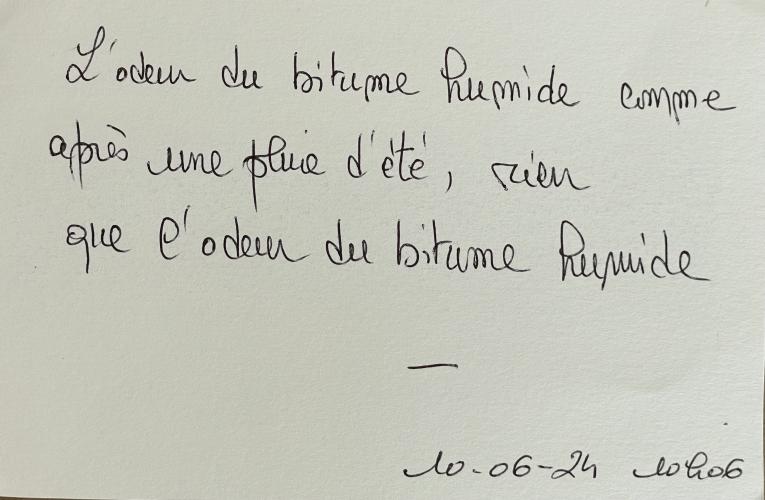 L'odeur du bitume humide comme
après une pluie d'été, rien
que l'odeur du bitume humide
—
10-06-24 10h06